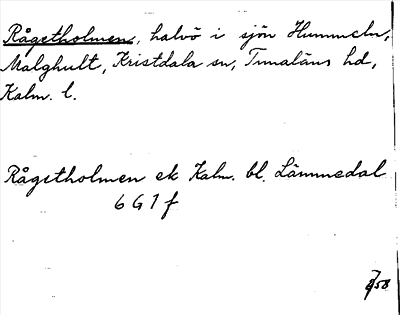 Rågetholmen, halvö i sjön Hummeln,
Malghult, Kristdala sn, Tunaläns hd,
Kalm. l.
Rågetholmen ek Kalm. bl. Lämmedal
6 G 1 f